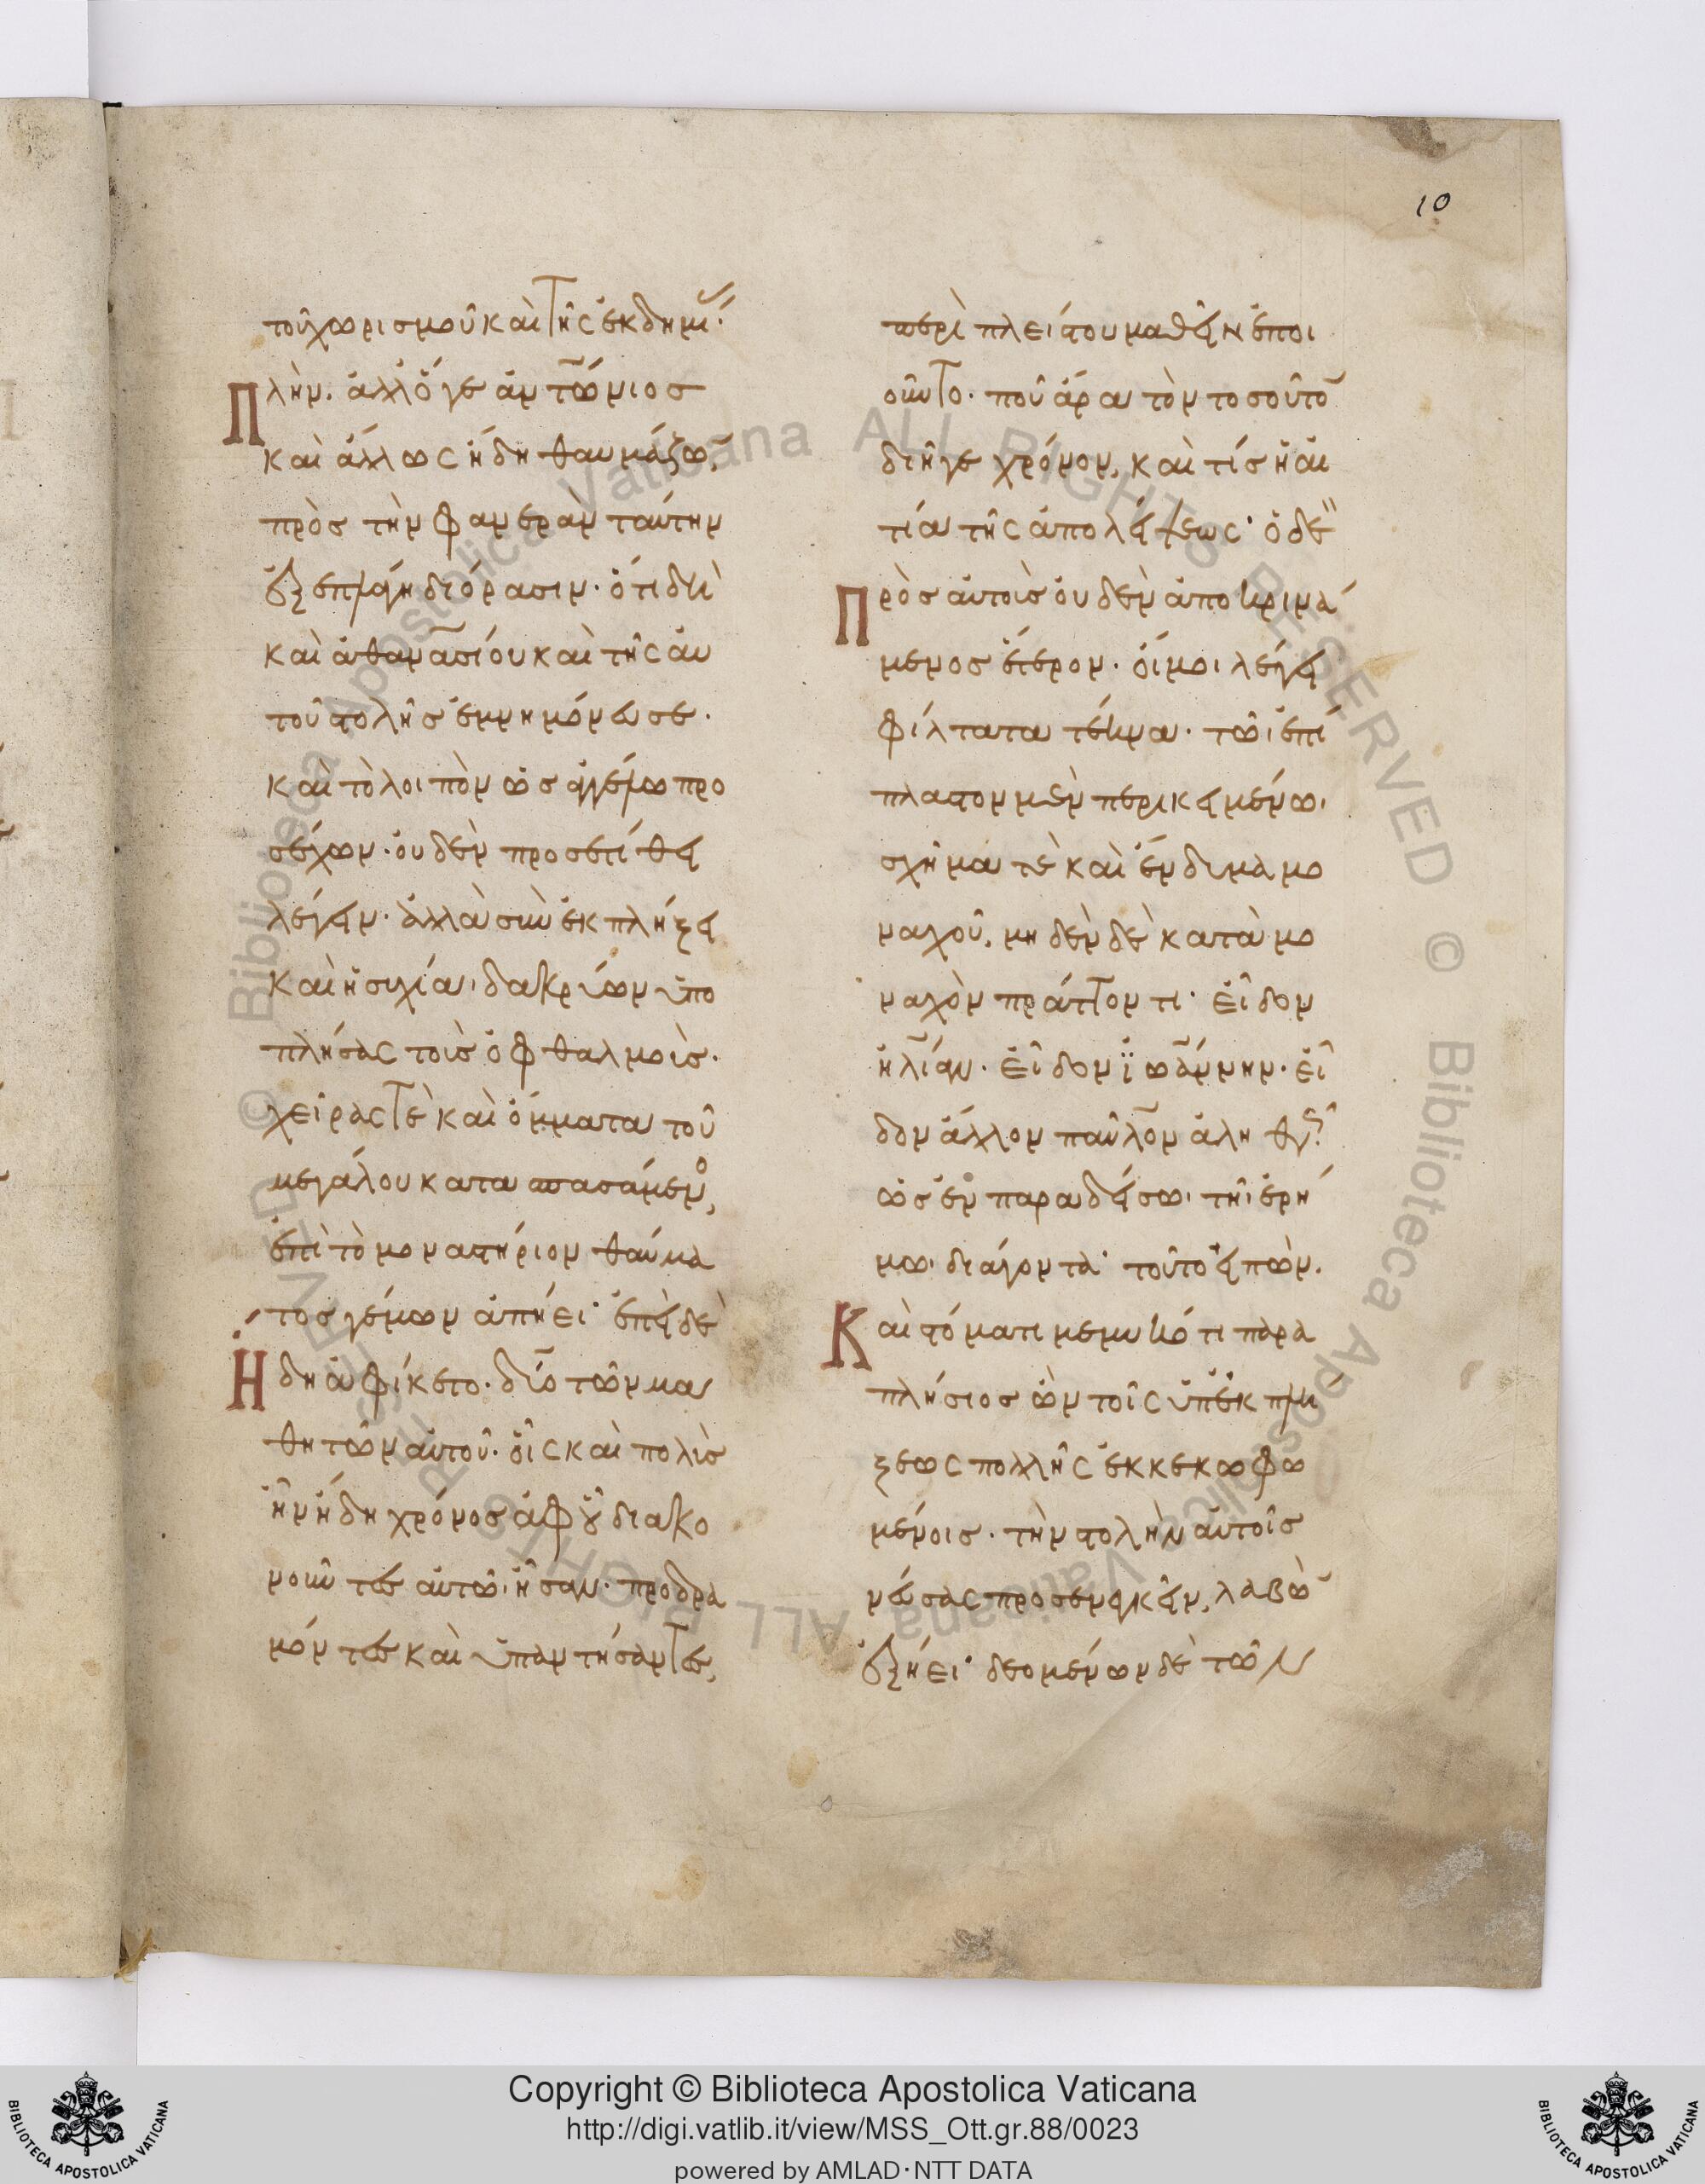 10
τοῦ χωρισμοῦ καὶ τῆς ἐκδημί
Πλὴν. ἀλλ' ὅγε ἀντώνιος
καὶ ἄλλως ἤδη θαυμάζων,
πρὸς τὴν φανερὰν ταύτην
ἐξεπλάγη διόρασιν· ὅτι δὴ
καὶ ἀθανασίου καὶ τῆς αὐ
τοῦ στολῆς ἐμνημόνευσε·
καὶ τὸ λοιπὸν ὡς ἀγγέλω προ
σέχων· οὐδὲν προσετίθει
λέγειν· ἀλλὰ σὺν ἐκπλήξει
καὶ ἡσυχία, δακρύων ὑπο
πλήσας τοῖς ὀφθαλμοῖς·
χεῖρας τὲ καὶ ὄμματα τοῦ
μεγάλου κατασπασάμενος,
ἐπὶ τὸ μοναστήριον θαύμα
τος γέμων ἀπήει· ἐπεὶ δὲ
Ἤδη ἀφίκετο· δύο τῶν μα
θητῶν αὐτοῦ· οἷς καὶ πολὺς
ἦν ἤδη χρόνος ἀφ' οὗ διακο
νοῦντες αὐτῶ· ἦσαν· προδρα
μόντες καὶ ὑπαντήσαντες,
περὶ πλείστου μαθεῖν ἐποι
οῦντο· ποῦ ἄρα τὸν τοσοῦτον
διῆγε χρόνον, καὶ τίς ἡ αἰ
τία τῆς ἀπολείψεως· ὁ δὲ
Πρὸς αὐτοὺς οὐδὲν ἀποκρινά
μενος ἕτερον· οἴμοι λέγει
φίλτατα τέκνα· τῶι ἐπί
πλαστον μὲν περικειμένω·
σχῆμα τὲ καὶ ἔνδυμα μο
ναχοῦ, μηδὲν δὲ κατὰ μο
ναχὸν πράττοντι· εἶδον
ἠλίαν· εἶδον ἰωάννην· εἶ
δον ἄλλον παῦλον ἀληθῶς
ὡς ἐν παραδείσω· τῆι ἐρή
μω· διάγοντα· τοῦτο εἰπὼν.
Καὶ στόματι μεμυκότι παρα
πλήσιος ὢν τοῖς ὑπ' ἐκπλή
ξεως πολλῆς ἐκκεκωφω
μένοις· τὴν στολὴν αὐτοῖς
νεύσας προσενεγκεῖν, λαβὼν
ἐξήει· δεομένων δὲ τῶν
Copyright © Biblioteca Apostolica Vaticana
http://digi.vatlib.it/view/MSS_Ott.gr.88/0023
powered by AMLAD·NTT DATA
BIBLIOTECA APOSTOLICA VATICANA
BIBLIOTECA APOSTOLICA VATICANA
© Biblioteca Apostolica Vaticana ALL RIGHTS RESERVED
© Biblioteca Apostolica Vaticana ALL RIGHTS RESERVED